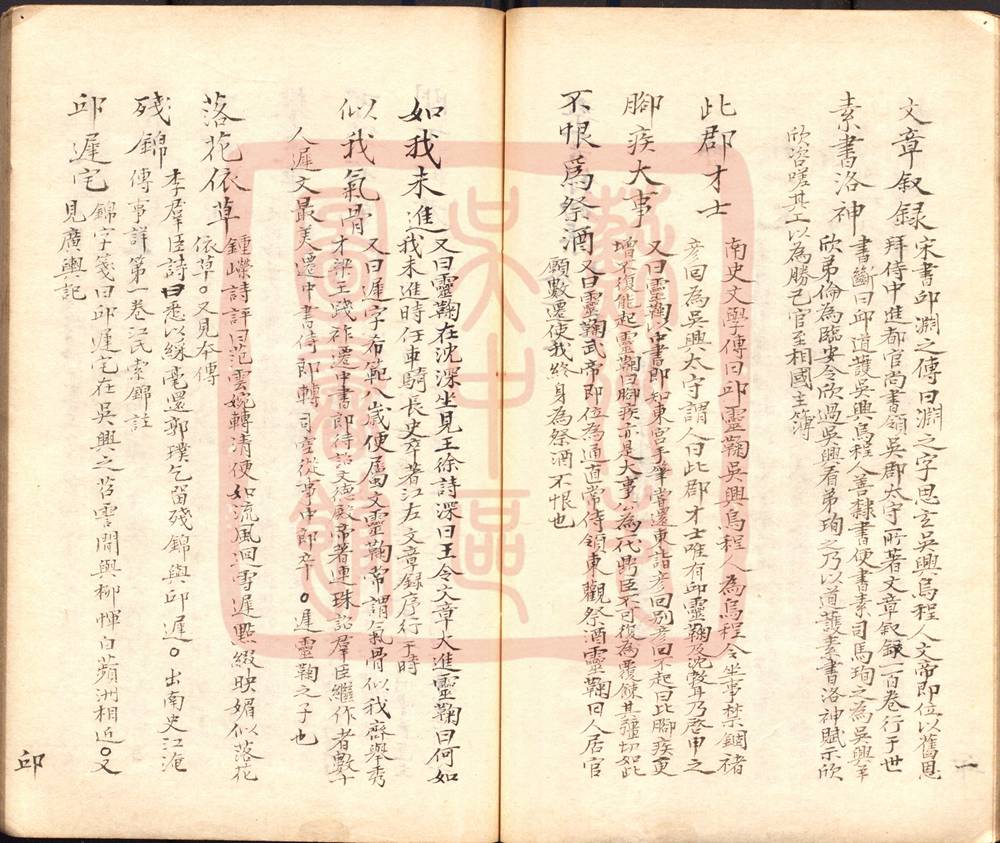 文章叙録宋書邱淵之傳曰淵之字思玄吳興烏程人文帝即位以舊恩
拜侍中進都官尚書領吳郡太守所著文章叙録一百卷行于世
素書洛神書斷曰邱道護吳興烏程人善隸書便書素司馬珣之為吳興羊
欣弟倫為臨安令欣過吳興看弟珣之乃以道護素書洛神賦示欣
欣咨嗟其工以為勝己官至相國主簿
此郡才士南史文學傳曰邱靈鞠吳興烏程人為烏程令坐事禁錮褚
彥回為吳興太守謂人曰此郡才士唯有邱靈鞠及沈勃耳乃啓申之
腳疾大事又曰靈鞠以中書郎知東宮手筆嘗還東詣彥回別彥回不起曰比腳疾更
增不復能起靈鞠曰腳疾亦是大事公為代鼎臣不可復為覆餗其彊切如此
不恨為祭酒又曰靈鞠武帝即位為通直常侍領東觀祭酒靈鞠曰人居官
願數遷使我終身為祭酒不恨也
如我未進又曰靈鞠在沈深坐見王儉詩深曰王令文章大進靈鞠曰何如
我未進時任車騎長史卒著江左文章録序行于時
似我氣骨又曰遲字希範八歲便屬文靈鞠常謂氣骨似我齊舉秀
才梁王踐祚遷中書郎待詔文德殿帝著連珠詔羣臣繼作者數十
人遲文最美遷中書侍郎轉司空從事中郎卒○遲靈鞠之子也
落花依草鍾嶸詩評曰范雲婉轉清便如流風迴雪遲點綴映媚似落花
依草○又見本傳
殘錦李羣臣詩曰悉以綵毫還郭璞乞留殘錦與邱遲○出南史江淹
傳事詳第一卷江氏索錦註
邱遲宅錦字箋曰邱遲宅在吳興之苕霅間與柳惲白蘋洲相近○又
見廣輿記
一
邱